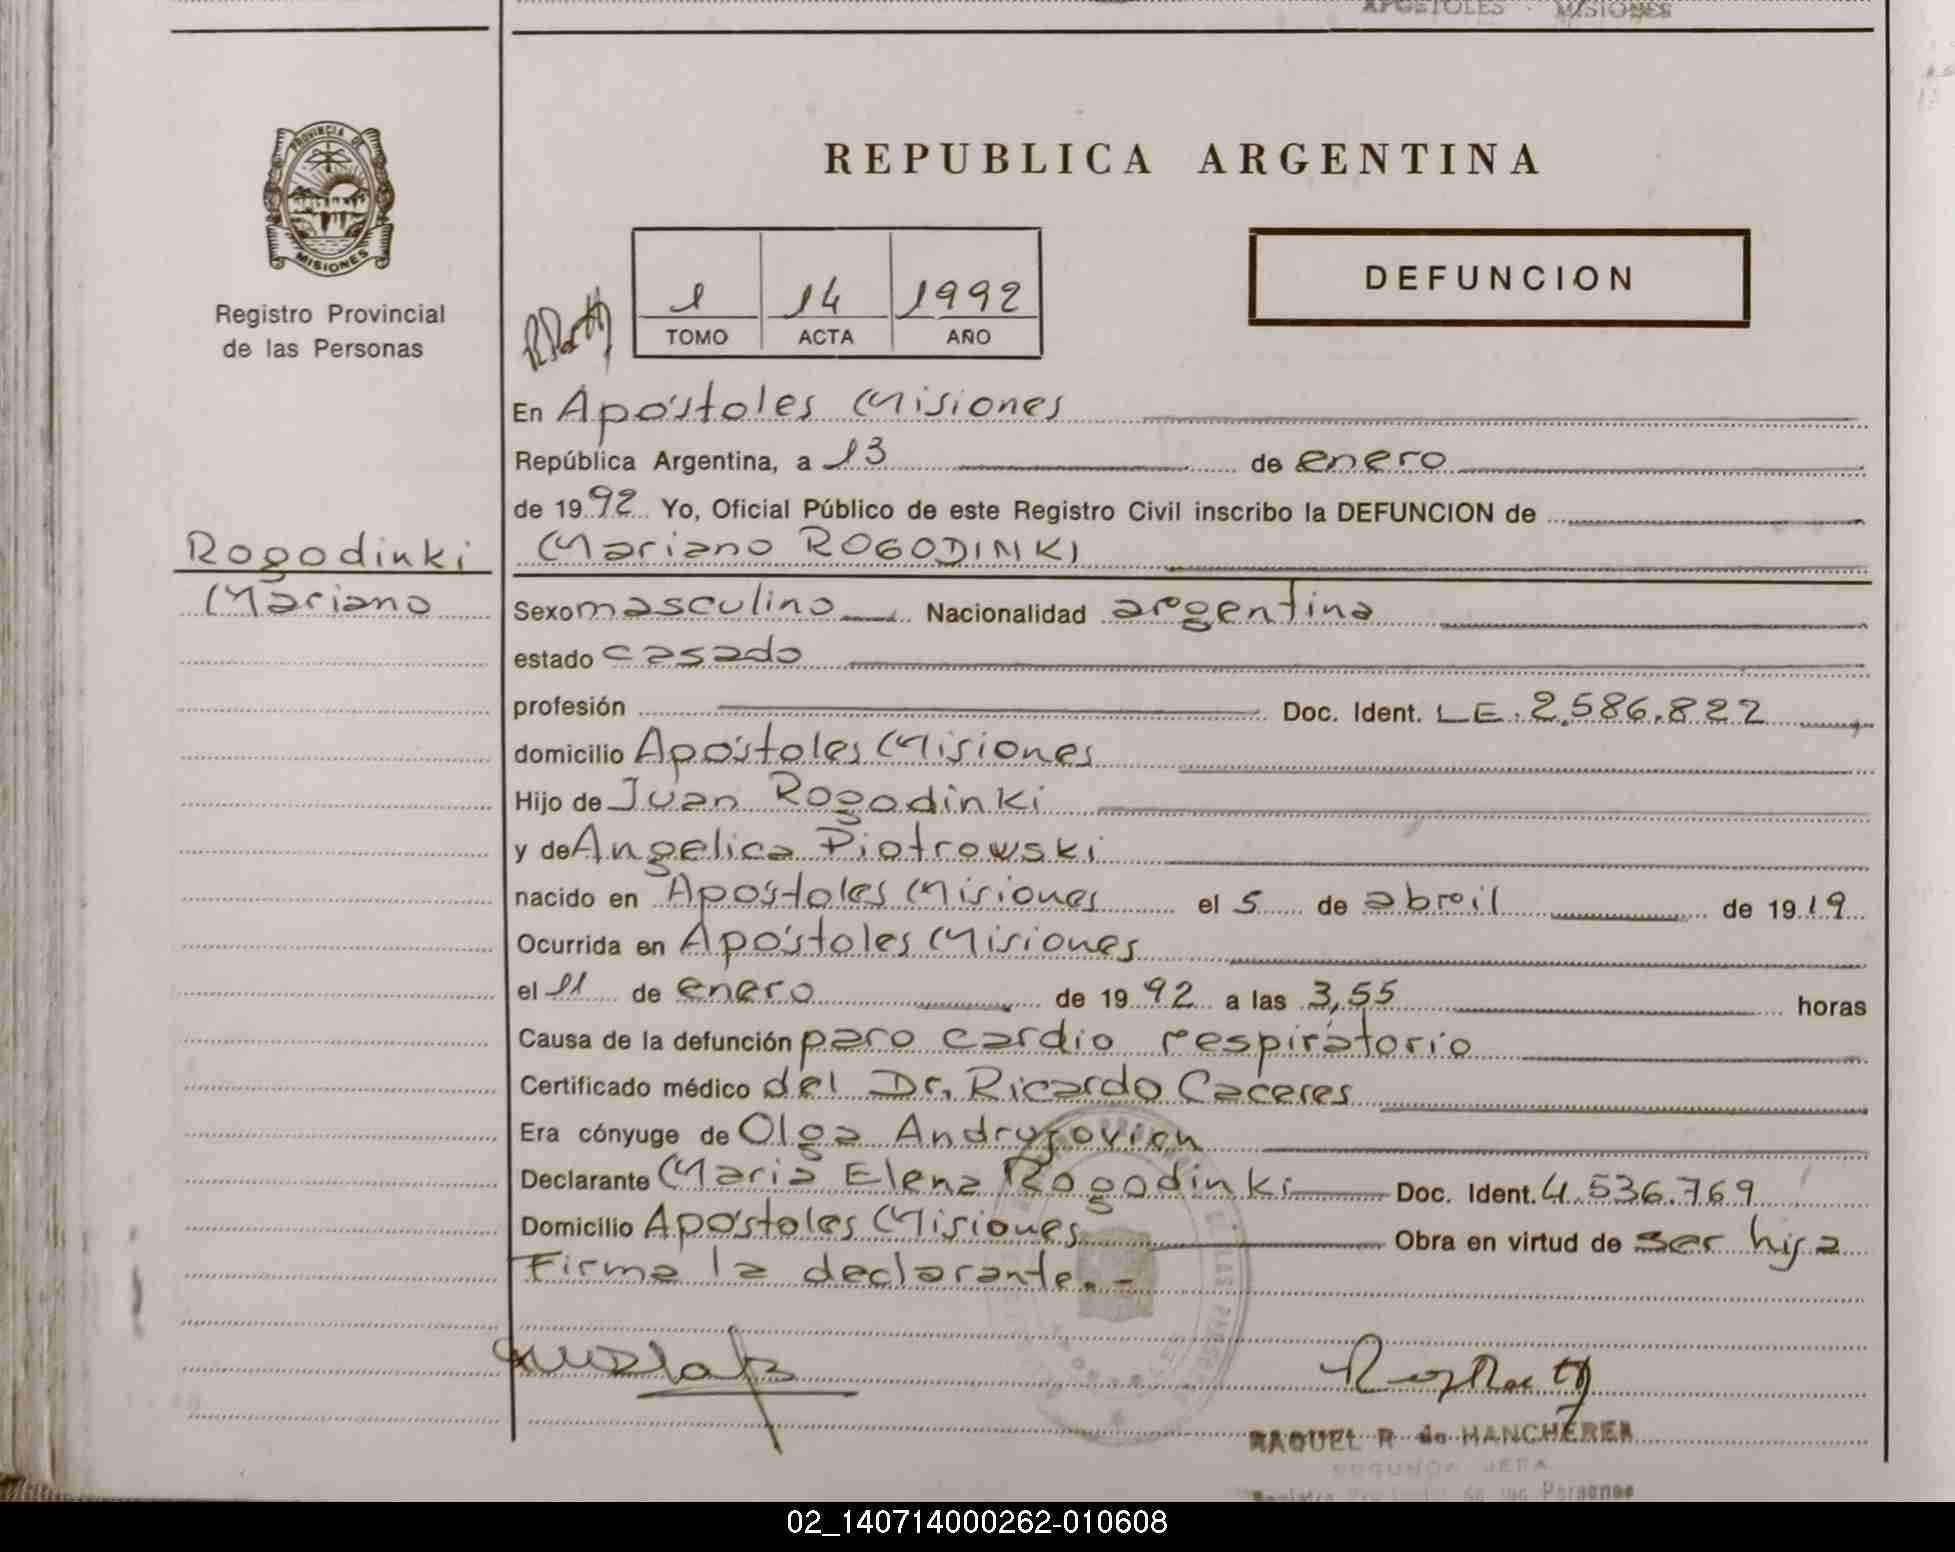 APOSTOLES - MISIONES
PROVINCIA DE
MISIONES
Registro Provincial
de las Personas
REPUBLICA ARGENTINA
1 14 1992
TOMO ACTA AÑO
DEFUNCION
En Apóstoles Misiones
República Argentina, a 13 de enero
de 1992 Yo, Oficial Público de este Registro Civil inscribo la DEFUNCION de
Rogodinki
Mariano
Mariano ROGODINKI
Sexo masculino Nacionalidad argentina
estado casado
profesión Doc. Ident. L E. 2.586.822
domicilio Apóstoles Misiones
Hijo de Juan Rogodinki
y de Angelica Piotrowski
nacido en Apóstoles Misiones el 5 de abril de 1919
Ocurrida en Apóstoles Misiones
el 11 de enero de 1992 a las 3,55 horas
Causa de la defunción paro cardio respiratorio
Certificado médico del Dr. Ricardo Caceres
Era cónyuge de Olga
Declarante Maria Elena Rogodinki Doc. Ident. 4.536.769
Domicilio Apóstoles Misiones Obra en virtud de ser hija
Firma la declarante.-
RAQUEL R de HANCHERER
SEGUNDA JEFA
Registro Provincial de las Personas
02_140714000262-010608